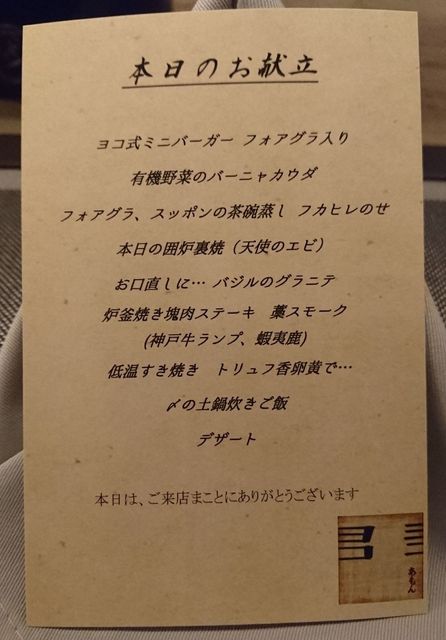 本日のお献立
ヨコ式ミニバーガー フォアグラ入り
有機野菜のバーニャカウダ
フォアグラ、スッポンの茶碗蒸し フカヒレのせ
本日の囲炉裏焼（天使のエビ）
お口直しに… バジルのグラニテ
炉釜焼き塊肉ステーキ 藁スモーク
(神戸牛ランプ、蝦夷鹿)
低温すき焼き トリュフ香卵黄で…
〆の土鍋炊きご飯
デザート
本日は、ご来店まことにありがとうございます
あもん